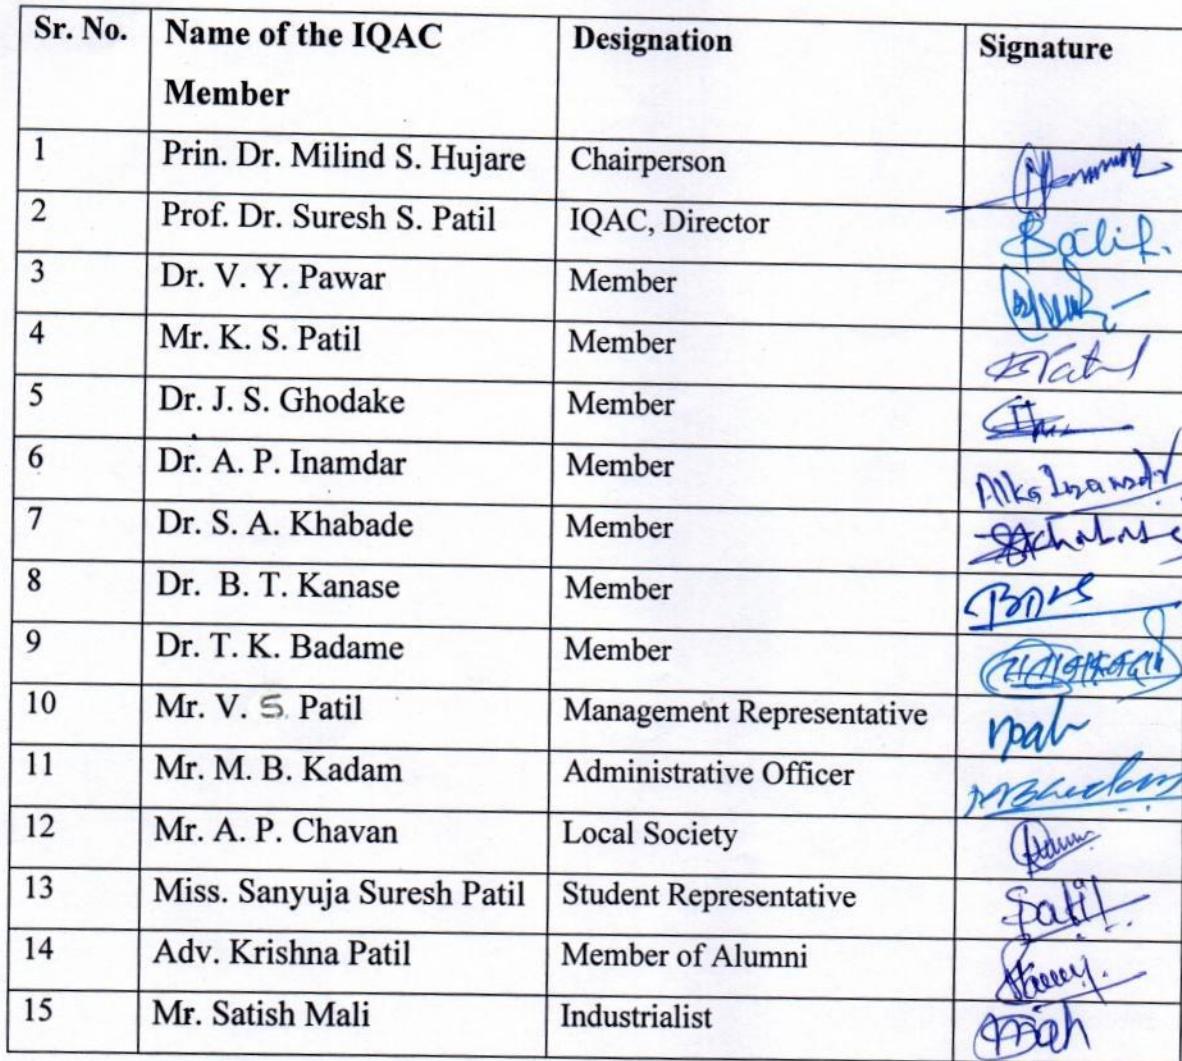 Sr. No. Name of the IQAC Member Designation Signature
1 Prin. Dr. Milind S. Hujare Chairperson
2 Prof. Dr. Suresh S. Patil IQAC, Director
3 Dr. V. Y. Pawar Member
4 Mr. K. S. Patil Member
5 Dr. J. S. Ghodake Member
6 Dr. A. P. Inamdar Member Alka Inamdar
7 Dr. S. A. Khabade Member
8 Dr. B. T. Kanase Member
9 Dr. T. K. Badame Member
10 Mr. V. S. Patil Management Representative
11 Mr. M. B. Kadam Administrative Officer
12 Mr. A. P. Chavan Local Society
13 Miss. Sanyuja Suresh Patil Student Representative
14 Adv. Krishna Patil Member of Alumni
15 Mr. Satish Mali Industrialist